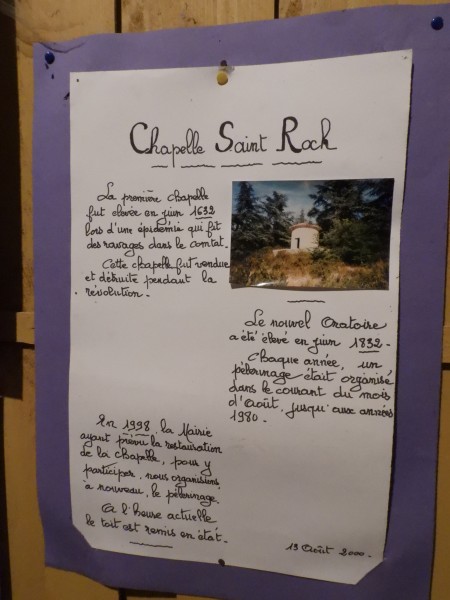 Chapelle Saint Roch
La première Chapelle
fut élevée en juin 1632
lors d'une épidémie qui fit
des ravages dans le comtat.
Cette chapelle fut vendue
et détruite pendant la
révolution.
Le nouvel Oratoire
a été élevé en juin 1832.
Chaque année, un
pèlerinage était organisé
dans le courant du mois
d'Août. jusqu'aux années
1980.
En 1998 la Mairie
ayant prévu la restauration
de la chapelle, pour y
participer, nous organisons
à nouveau, le pèlerinage.
A l'heure actuelle
le toit est remis en état.
13 Août 2000.